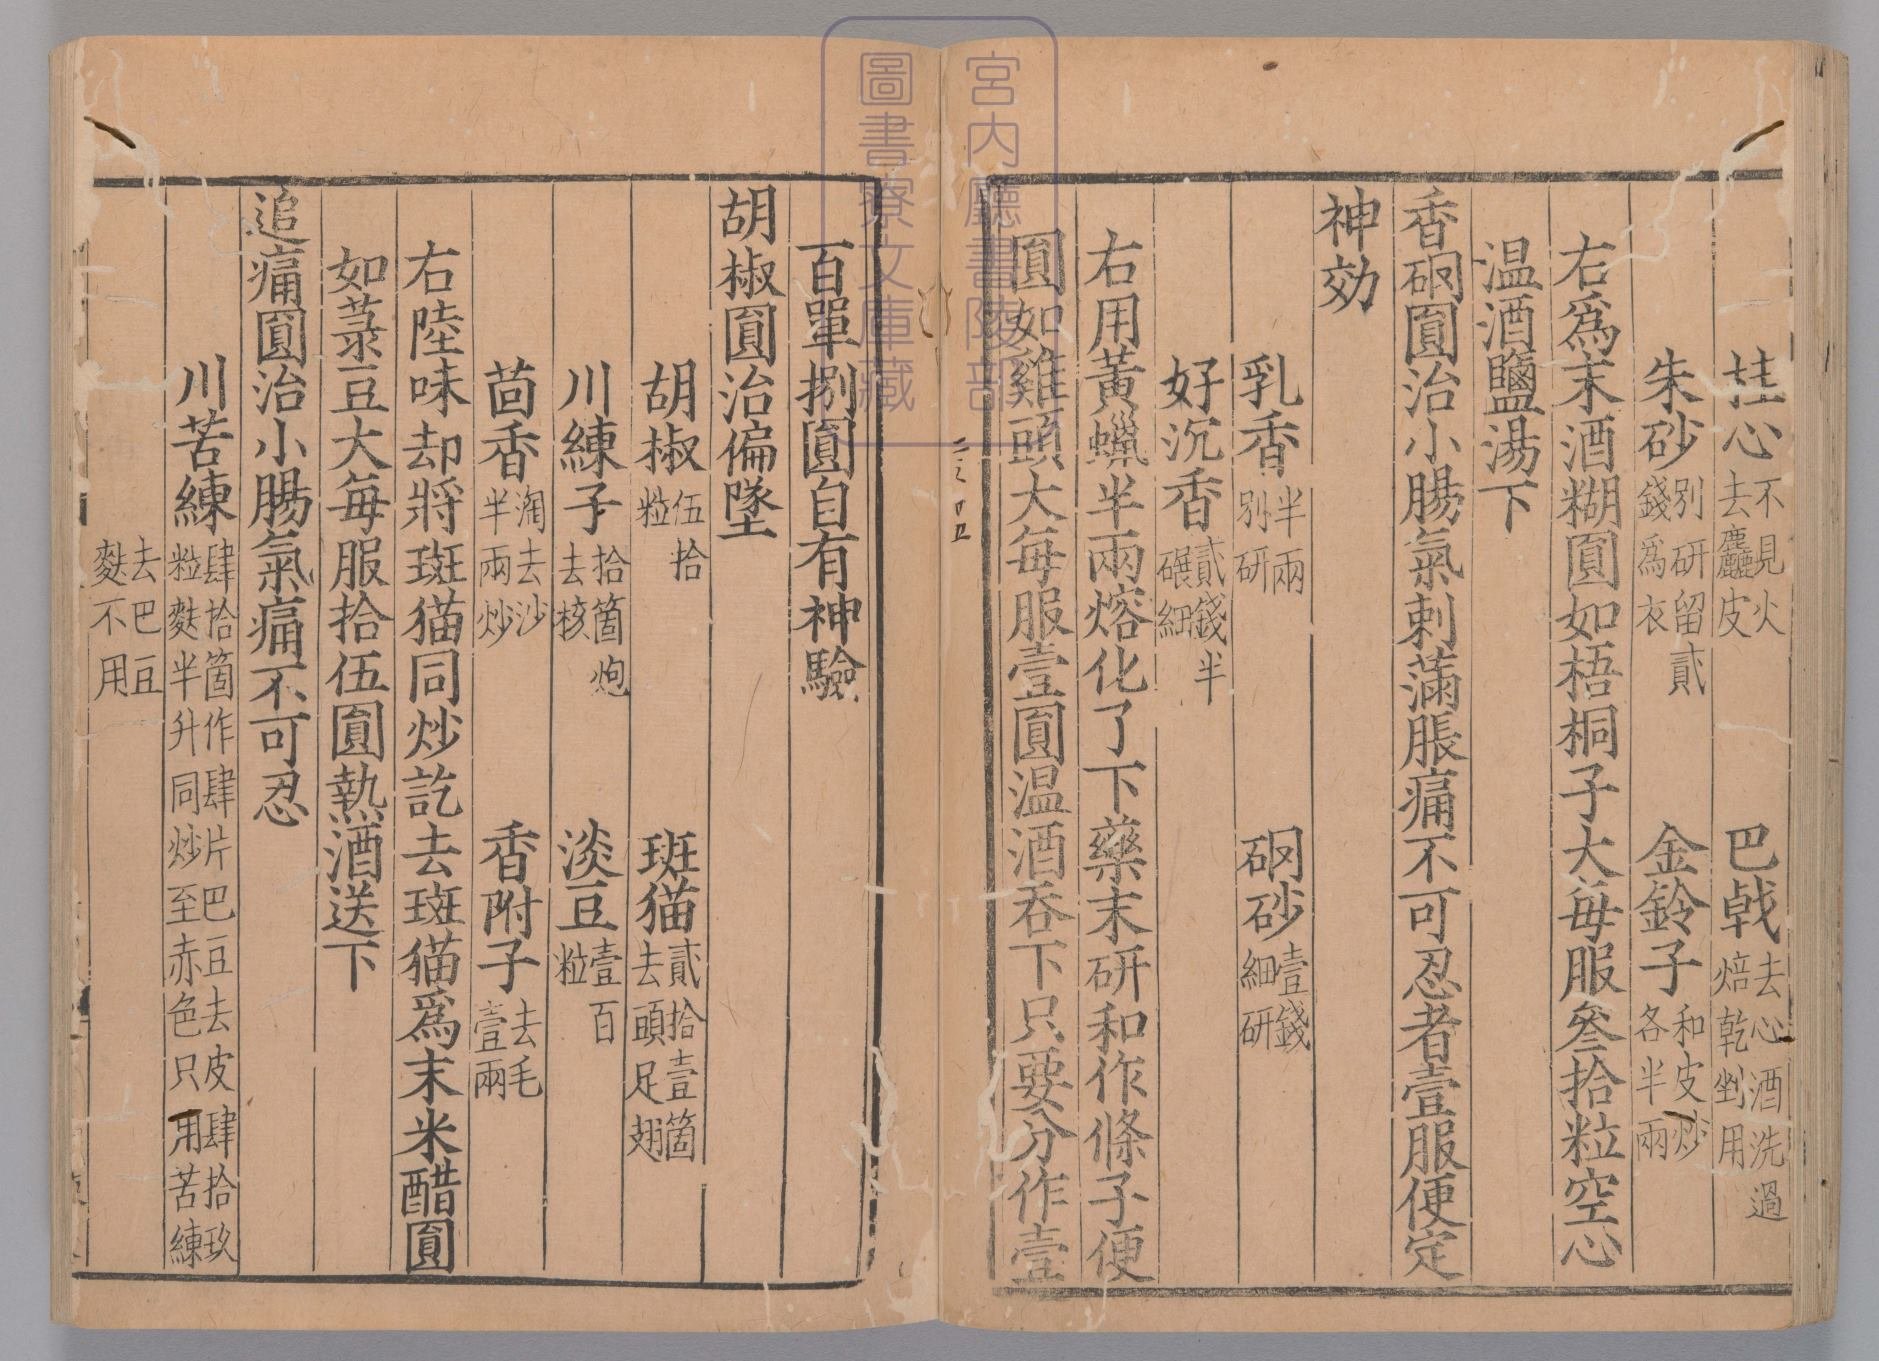 桂心不見火去麤皮　巴戟去心酒洗過焙乾剉用
朱砂別研留貳錢爲衣　金鈴子和皮炒各半兩
右爲末酒糊圓如梧桐子大每服叄拾粒空心
温酒鹽湯下
香硇圓治小腸氣刺滿脹痛不可忍者壹服便定
神効
乳香半兩別研　硇砂壹錢細研
好沉香貳錢半碾細
右用黃蠟半兩熔化了下藥末研和作條子便
圓如雞頭大每服壹圓温酒吞下只要分作壹
百單捌圓自有神驗
胡椒圓治偏墜
胡椒伍拾粒　斑猫貳拾壹箇去頭足翅
川練子拾箇炮去核　淡豆壹百粒
茴香淘去沙半兩炒　香附子去毛壹兩
右陸味却將斑猫同炒訖去斑猫爲末米醋圓
如菉豆大每服拾伍圓熱酒送下
追痛圓治小腸氣痛不可忍
川苦練肆拾箇作肆片巴豆去皮肆拾玖粒麩半升同炒至赤色只用苦練
去巴豆麩不用
宮内廳書陵部
圖書寮文庫藏